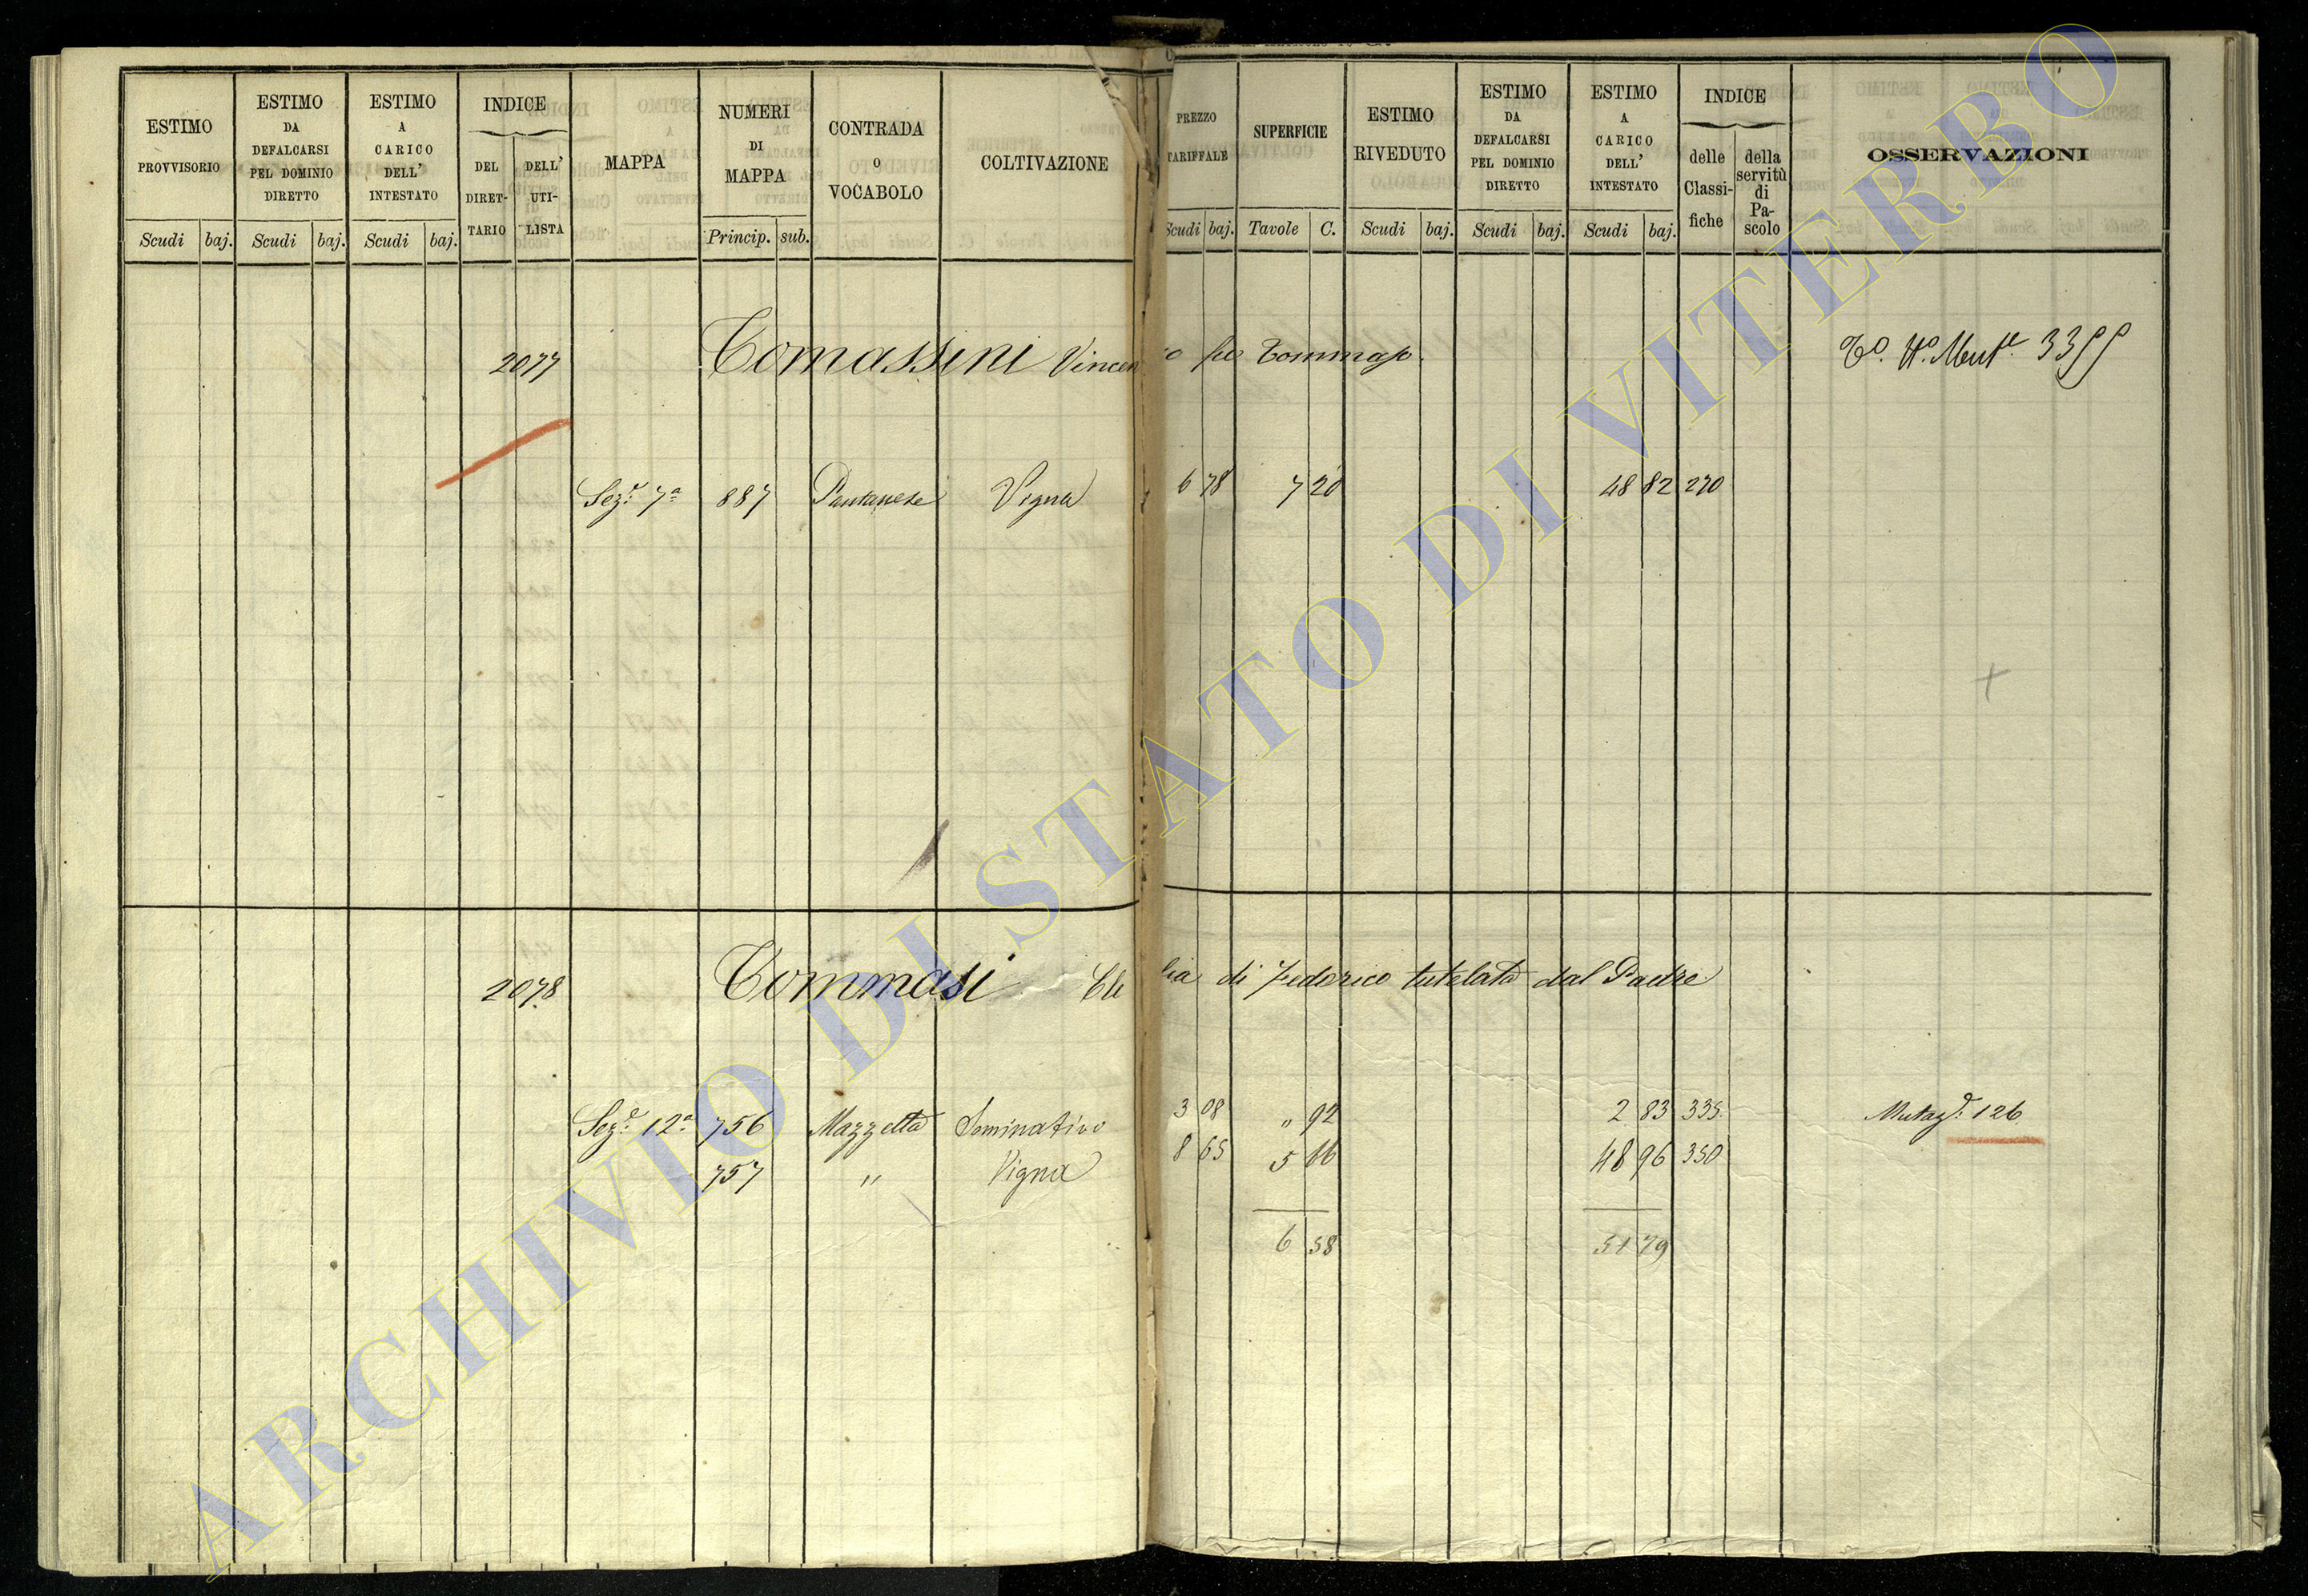 ESTIMO PROVVISORIO
Scudi baj.
ESTIMO DA DEFALCARSI PEL DOMINIO DIRETTO
Scudi baj.
ESTIMO A CARICO DELL' INTESTATO
Scudi baj.
INDICE
DEL DIRET-TARIO
DELL' UTI-LISTA
MAPPA
NUMERI DI MAPPA
Princip. sub.
CONTRADA O VOCABOLO
COLTIVAZIONE
PREZZO TARIFFALE
Scudi baj.
SUPERFICIE
Tavole C.
ESTIMO RIVEDUTO
Scudi baj.
ESTIMO DA DEFALCARSI PEL DOMINIO DIRETTO
Scudi baj.
ESTIMO A CARICO DELL' INTESTATO
Scudi baj.
INDICE
delle Classi-fiche
della servitù di Pa-scolo
OSSERVAZIONI
2077 Tomassini Vincen o Tommaso
Sez.e 7a 887 Pantanese Vigna 6 78 7 20 48 82 270
2078 Tommasi Cle lia di Federico tutelata dal Padre
Sez.e 12a 756 Mazzetta Seminativo 3 08 " 92 2 83 335 Mutaz.e 126
757 " Vigna 8 65 5 66 48 96 350
6 58 51 79
ARCHIVIO DI STATO DI VITERBO